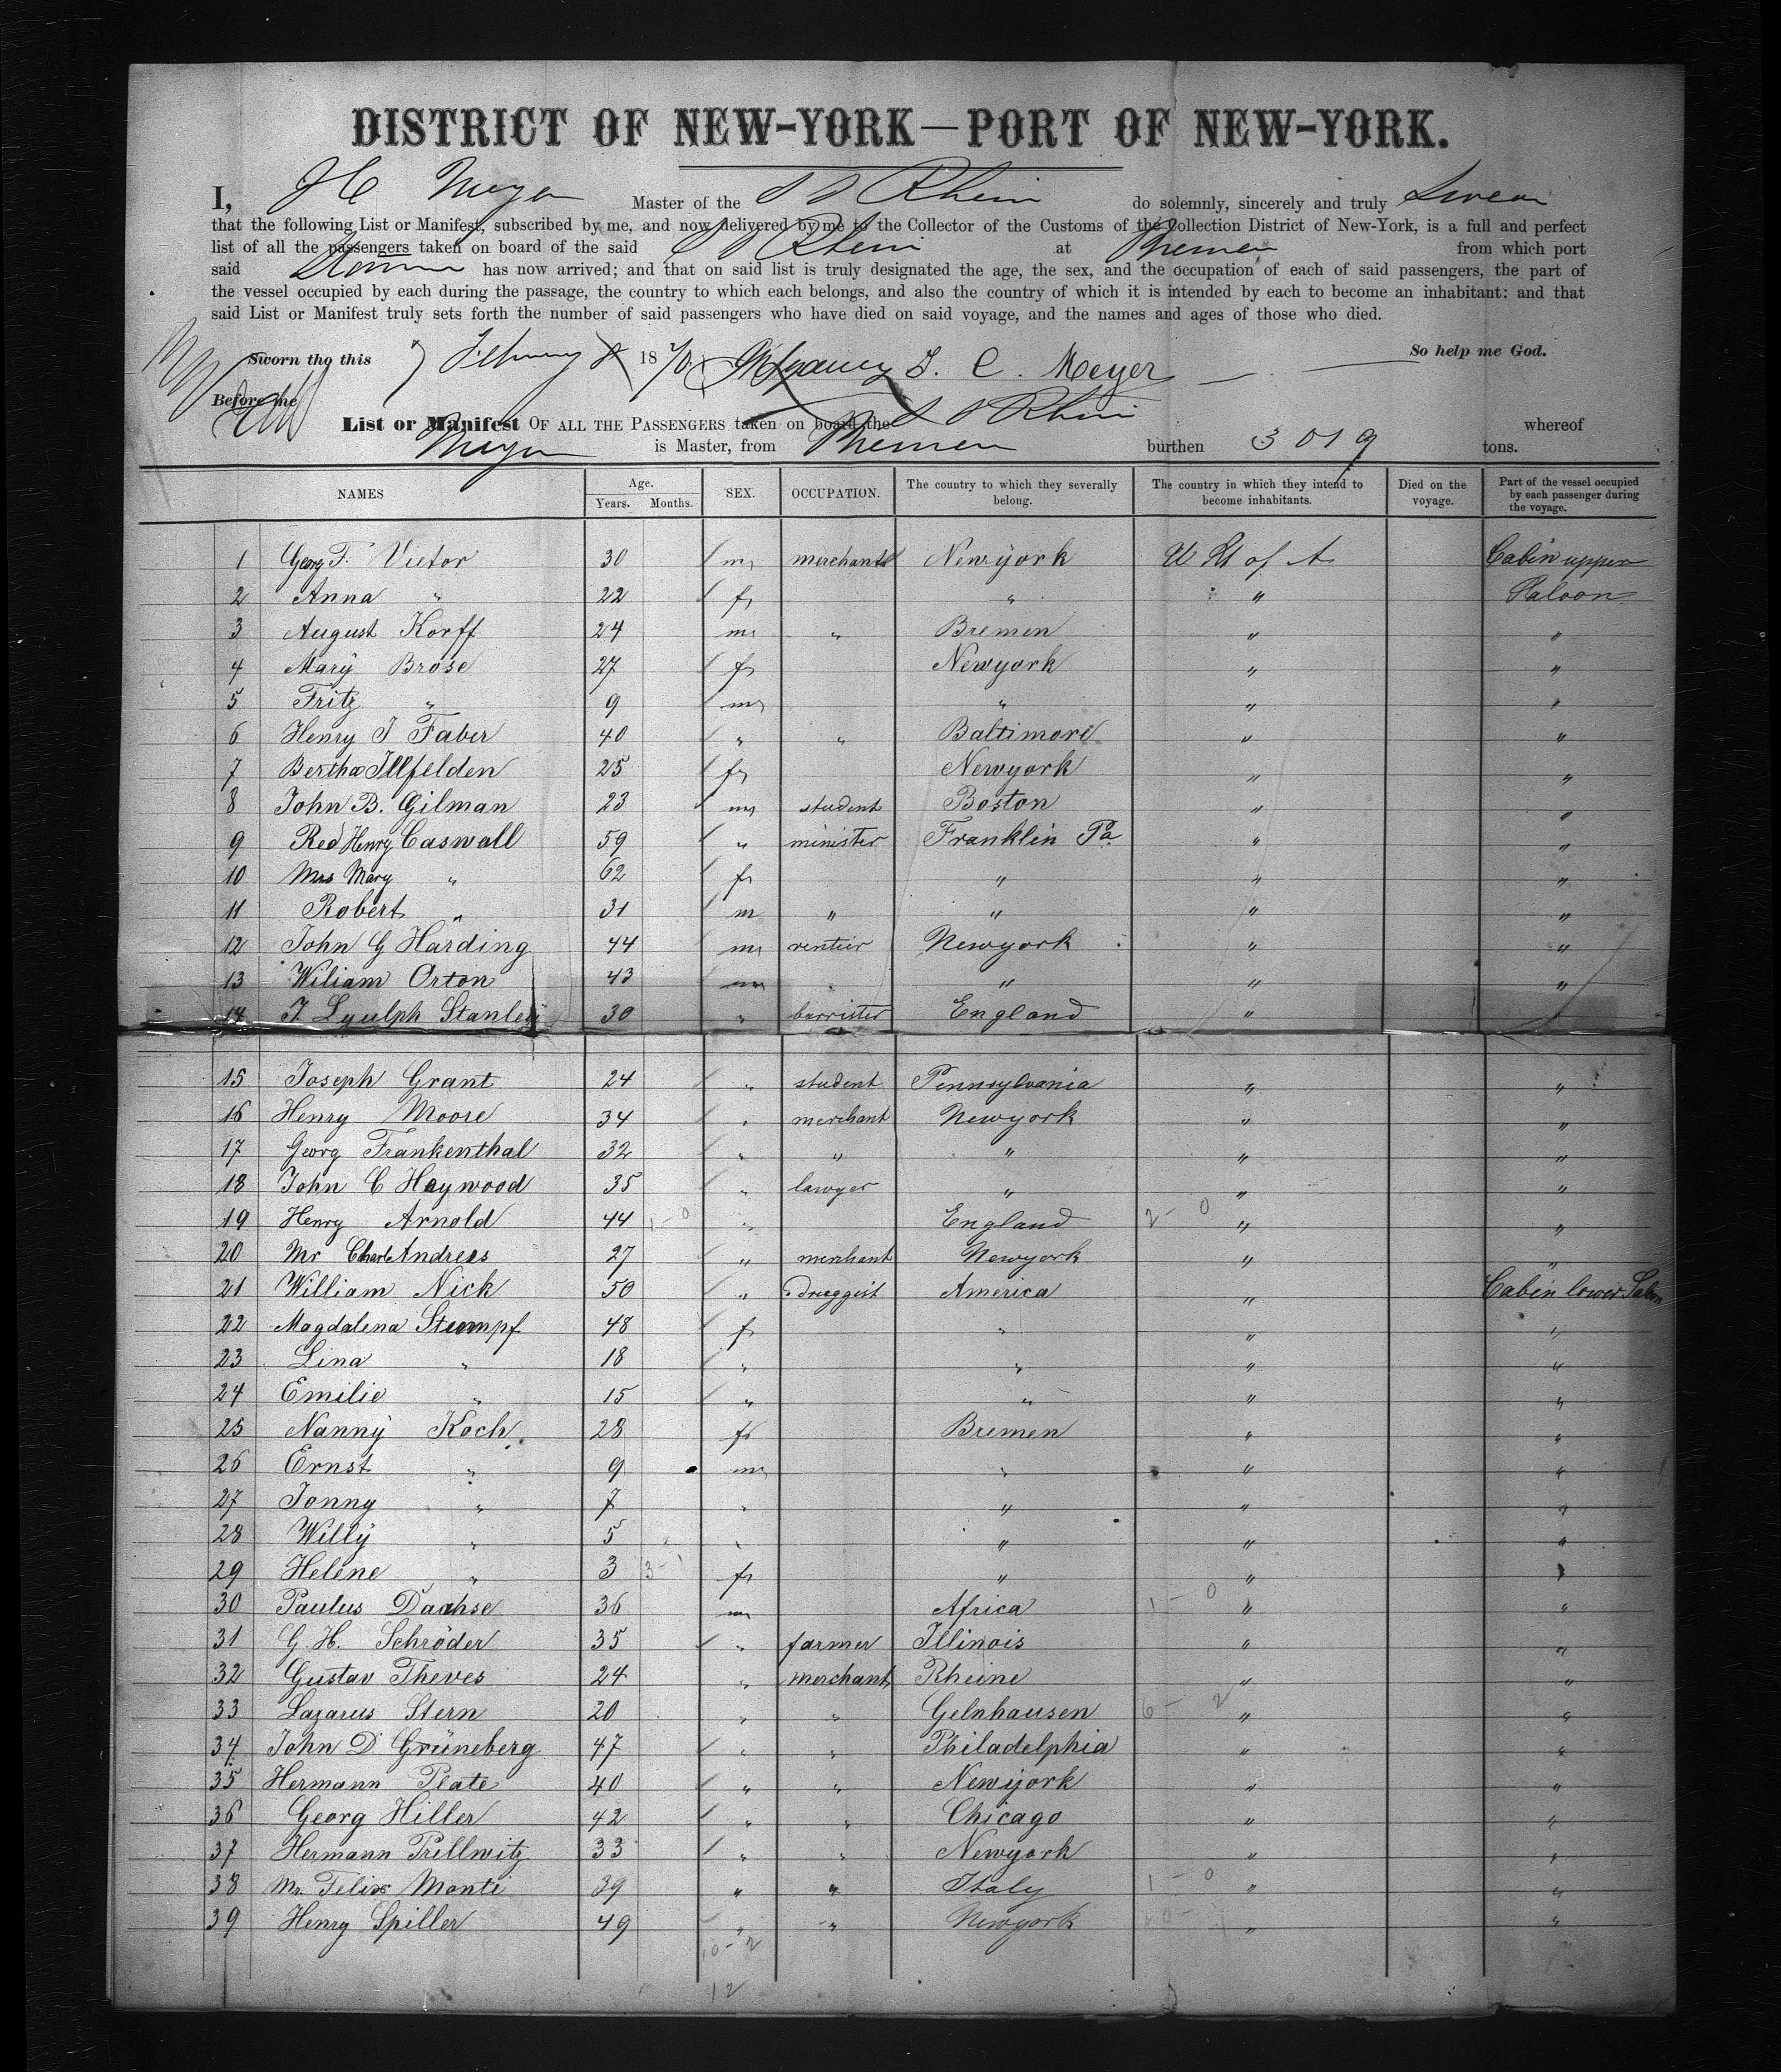 DISTRICT OF NEW-YORK—PORT OF NEW-YORK.
I, Meyer Master of the S S Rhein do solemnly, sincerely and truly swear
that the following List or Manifest, subscribed by me, and now delivered by me to the Collector of the Customs of the Collection District of New-York, is a full and perfect
list of all the passengers taken on board of the said S S Rhein at Bremen from which port
said Steamer has now arrived; and that on said list is truly designated the age, the sex, and the occupation of each of said passengers, the part of
the vessel occupied by each during the passage, the country to which each belongs, and also the country of which it is intended by each to become an inhabitant: and that
said List or Manifest truly sets forth the number of said passengers who have died on said voyage, and the names and ages of those who died.
Sworn tho this February 8 1870 C. Meyer So help me God.
Before me
List or Manifest OF ALL THE PASSENGERS taken on board the S S Rhein whereof
Meyer is Master, from Bremen burthen 3019 tons.
NAMES Age. Years. Months. SEX. OCCUPATION. The country to which they severally belong. The country in which they intend to become inhabitants. Died on the voyage. Part of the vessel occupied by each passenger during the voyage.
1 Georg F. Vietor 30 m merchant Newyork U St of A Cabin upper
2 Anna " 22 f " " Saloon
3 August Korff 24 m " Bremen " "
4 Mary Brose 27 f Newyork " "
5 Fritz " 9 m " " "
6 Henry J Faber 40 " " Baltimore " "
7 Bertha Illfelden 25 f Newyork " "
8 John B. Gilman 23 m student Boston " "
9 Red Henry Caswall 59 " minister Franklin Pa. " "
10 Mrs Mary " 62 f " " "
11 Robert " 31 m " " " "
12 John G Harding 44 m rentier Newyork " "
13 Wiliam Orton 43 m " " "
14 J. Lyulph Stanley 30 " barrister England " "
15 Joseph Grant 24 " student Pennsylvania " "
16 Henry Moore 34 " merchant Newyork " "
17 Georg Frankenthal 32 " " " " "
18 John C Haywood 35 " lawyer " " "
19 Henry Arnold 44 1-0 " England 2-0 " "
20 Mr Charle Andrees 27 " merchant Newyork " "
21 William Nick 50 " druggist America " Cabin lower Salon
22 Magdalena Stumpf 48 f " " "
23 Lina " 18 " " " "
24 Emilie " 15 " " " "
25 Nanny Koch 28 f Bremen " "
26 Ernst " 9 m " " "
27 Jonny " 7 " " " "
28 Willy " 5 " " " "
29 Helene " 3 3-1 f " " "
30 Paulus Daahse 36 m Africa 1-0 " "
31 G. H. Schröder 35 " farmer Illinois " "
32 Gustav Theves 24 " merchant Rheine " "
33 Lazarus Stern 20 " " Gelnhausen 6-2 " "
34 John D Grüneberg 47 " " Philadelphia " "
35 Hermann Plate 40 " " Newyork " "
36 Georg Hiller 42 " " Chicago " "
37 Hermann Prellwitz 33 " " Newyork " "
38 Mr. Felix Monti 39 " " Italy 1-0 " "
39 Henry Spiller 49 " " Newyork " "
10-2
12